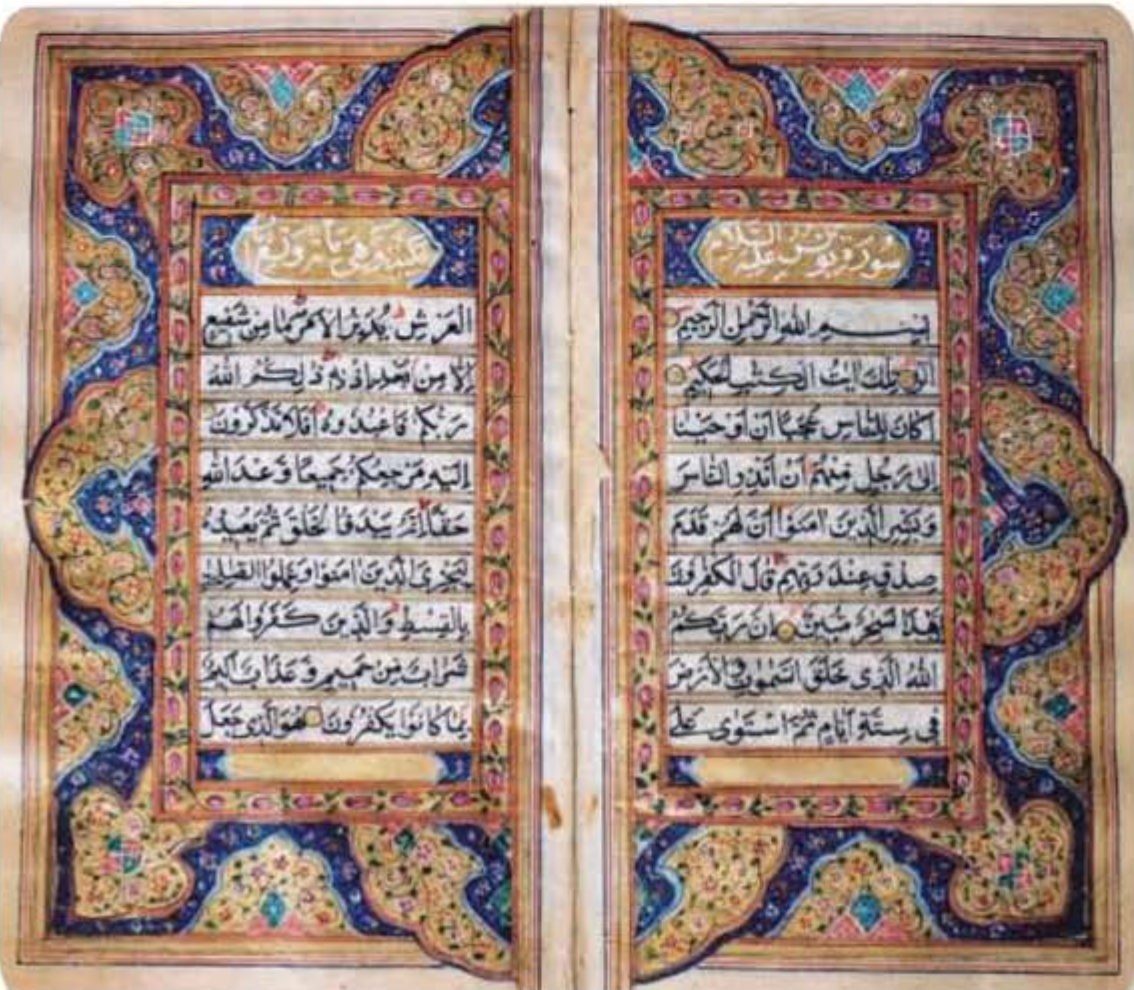 سورة يونس عليه السلام
بسم الله الرحمن الرحيم
الر تلك ايت الكتب الحكيم
اكان للناس عجبا ان اوحينا
الى رجل منهم ان انذر الناس
وبشر الذين امنوا ان لهم قدم
صدق عند ربهم قال الكفرون
هذا لسحر مبين ان ربكم
الله الذى خلق السموت والارض
فى ستة ايام ثم استوى على
مكية وهى مائة وتسع
العرش يدبر الامر ما من شفيع
الا من بعد اذنه ذلكم الله
ربكم فاعبدوه افلا تذكرون
اليه مرجعكم جميعا وعد الله
حقا انه يبدؤا الخلق ثم يعيده
ليجزى الذين امنوا وعملوا الصلحت
بالقسط والذين كفروا لهم
شراب من حميم وعذاب اليم
بما كانوا يكفرون هو الذى جعل